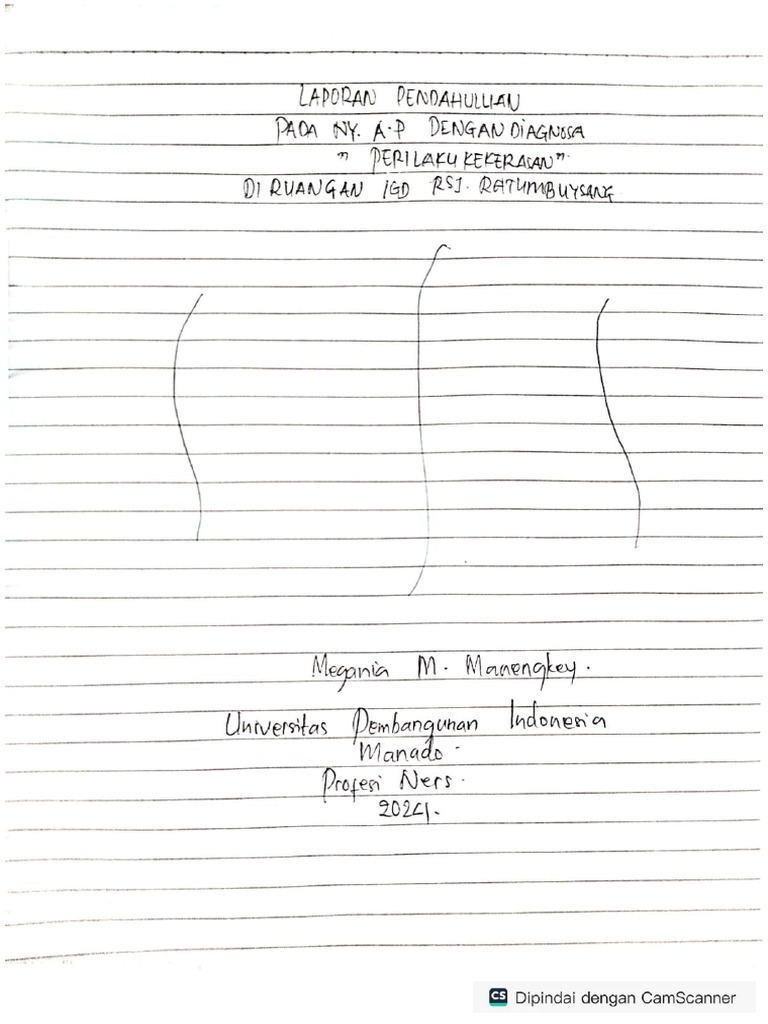 LAPORAN PENDAHULUAN
PADA NY. A.P DENGAN DIAGNOSA
" PERILAKU KEKERASAN".
DI RUANGAN IGD RSJ. RATUMBUYSANG
Megania M. Manengkey.
Universitas Pembangunan Indonesia
Manado.
Profesi Ners.
2024.
CS Dipindai dengan CamScanner